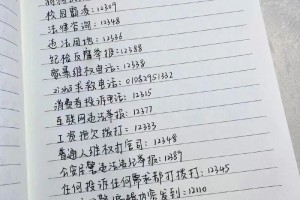 校园霸凌:12309
法律咨询:12348
违法用地:12336
纪检反腐举报:12388
家暴维权电话:12338
求救电话:01082951332
消费者投诉电话:12315
互联网违法举报:12377
工资拖欠拨打:12333
普通人维权打官司:12348
公安民警违法违纪举报:12389
任何投诉任何需求都可拨打:12345
发到:12110